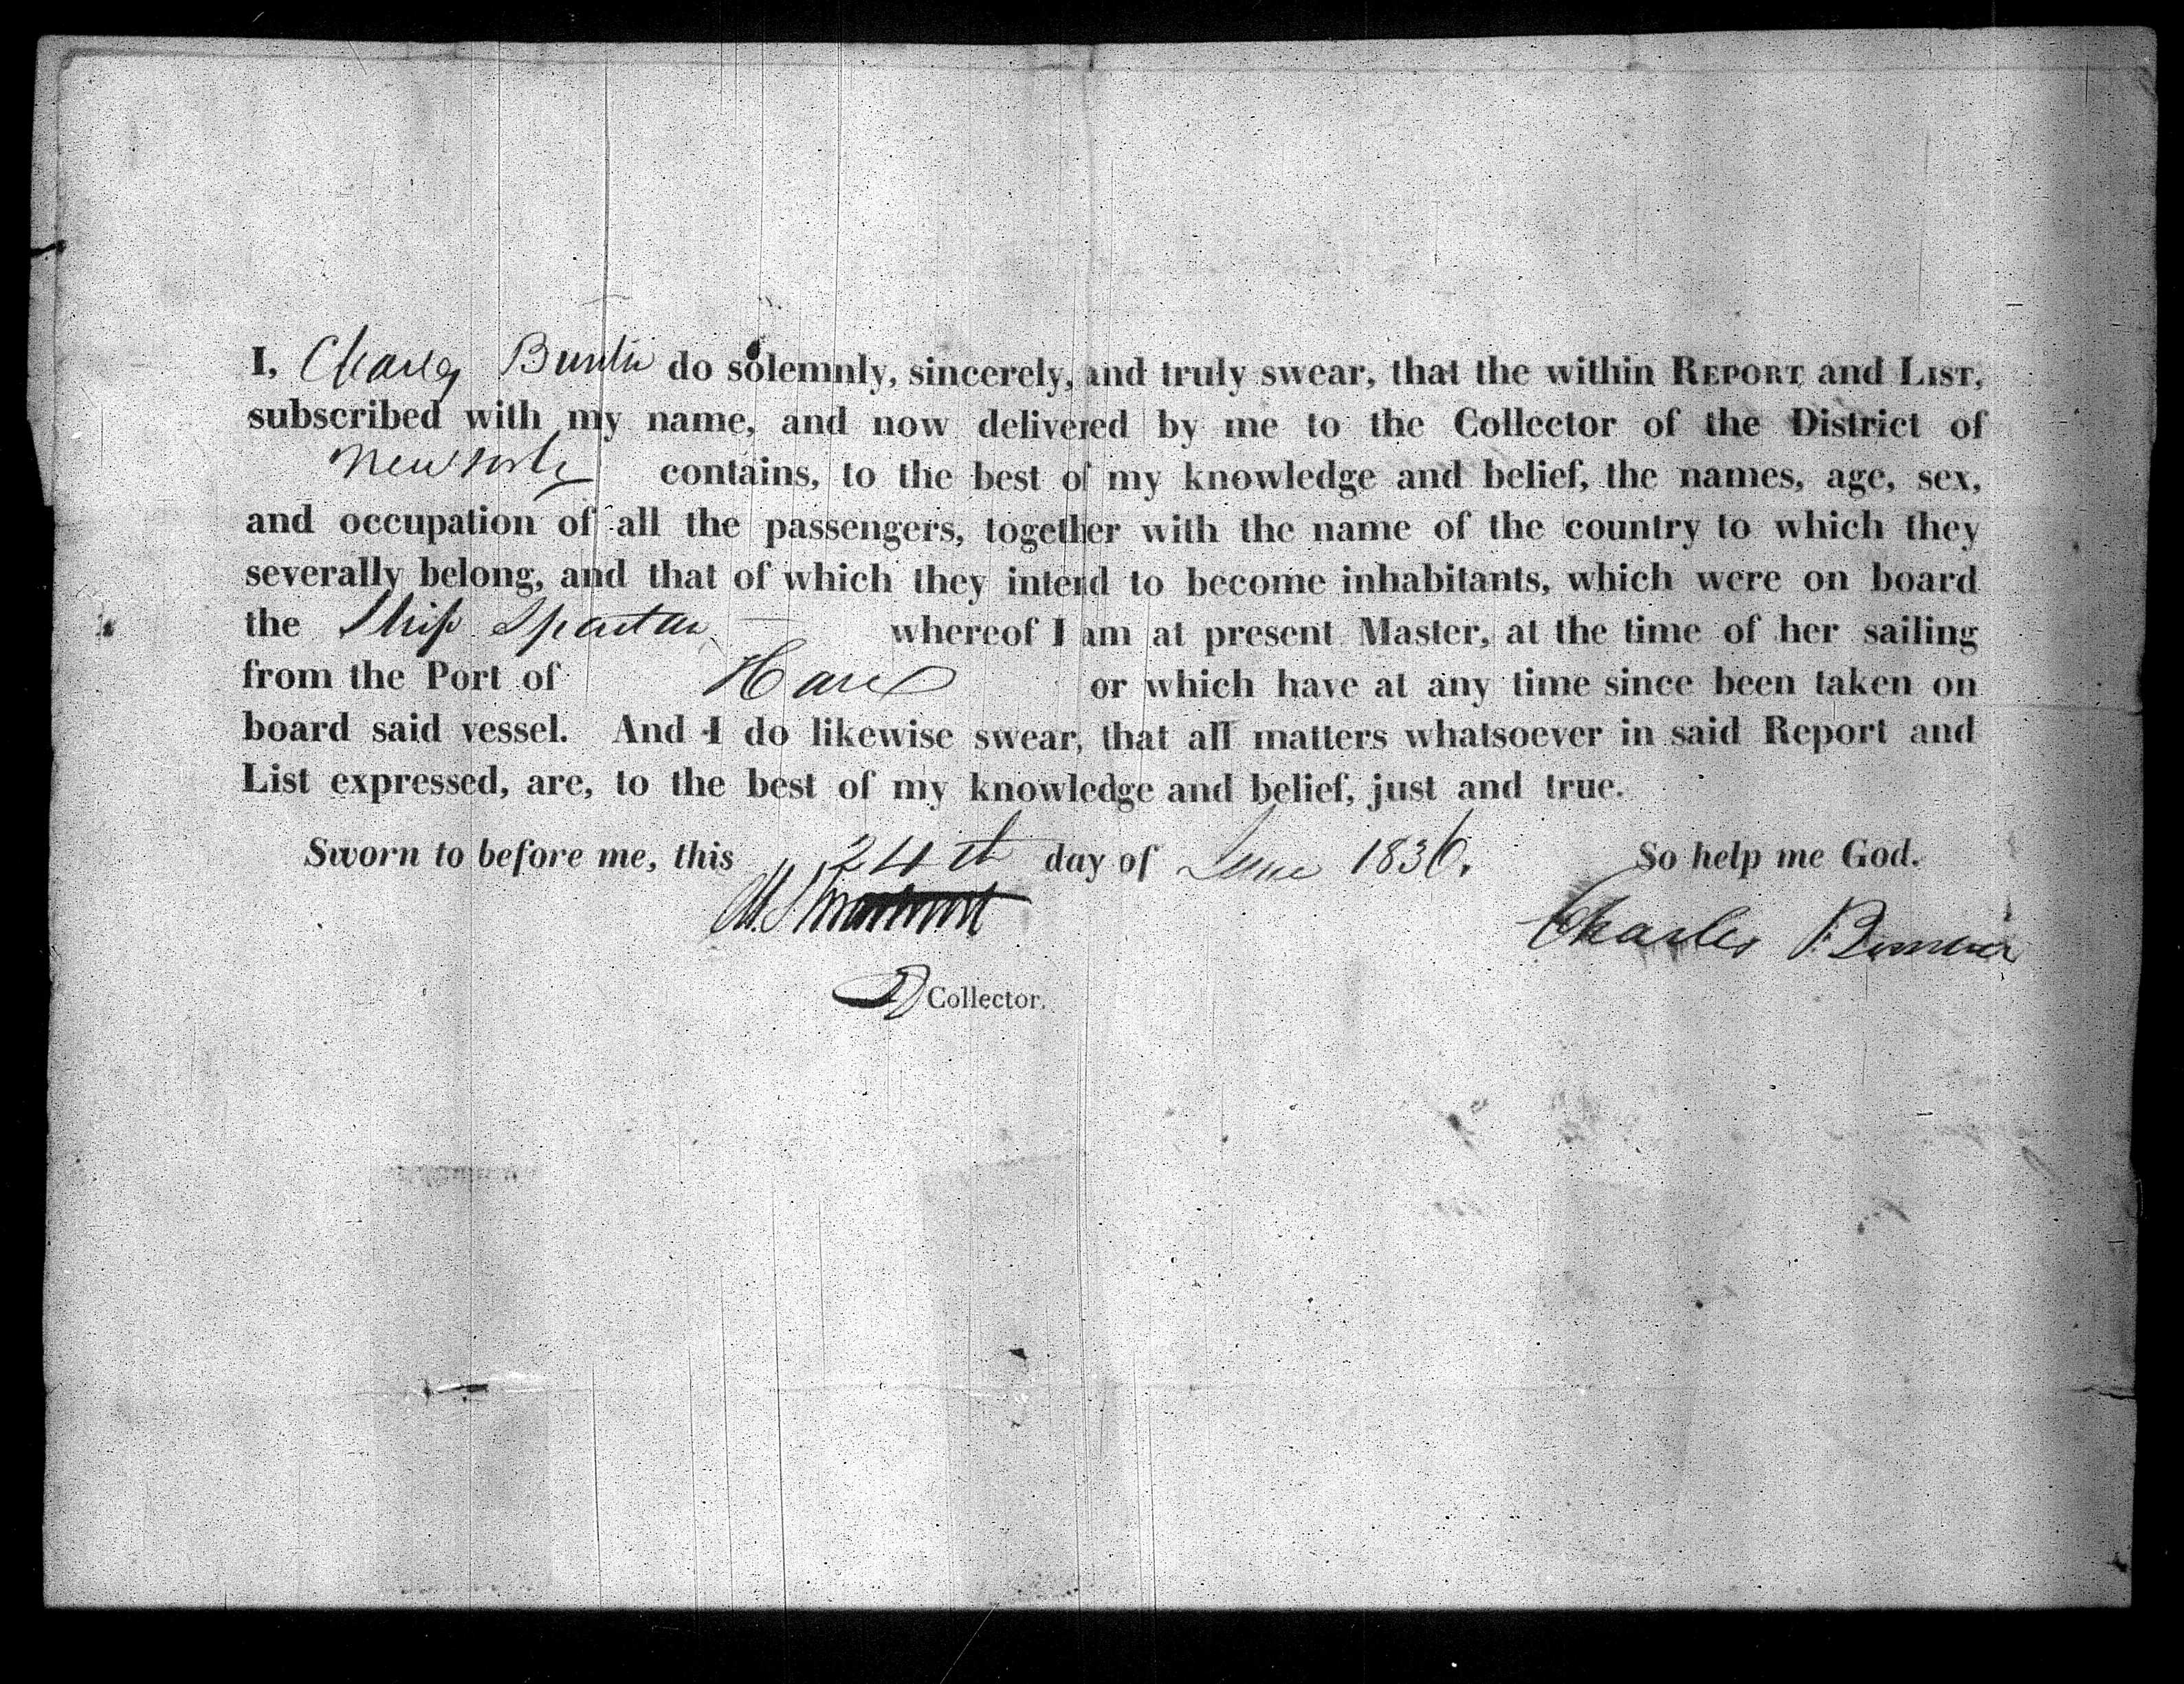 I, Charles do solemnly, sincerely, and truly swear, that the within REPORT and LIST,
subscribed with my name, and now delivered by me to the Collector of the District of
New York contains, to the best of my knowledge and belief, the names, age, sex,
and occupation of all the passengers, together with the name of the country to which they
severally belong, and that of which they intend to become inhabitants, which were on board
the Ship Spartan whereof I am at present Master, at the time of her sailing
from the Port of or which have at any time since been taken on
board said vessel. And I do likewise swear, that all matters whatsoever in said Report and
List expressed, are, to the best of my knowledge and belief, just and true.
Sworn to before me, this 24th day of June 1836. So help me God.
Charles
Collector.